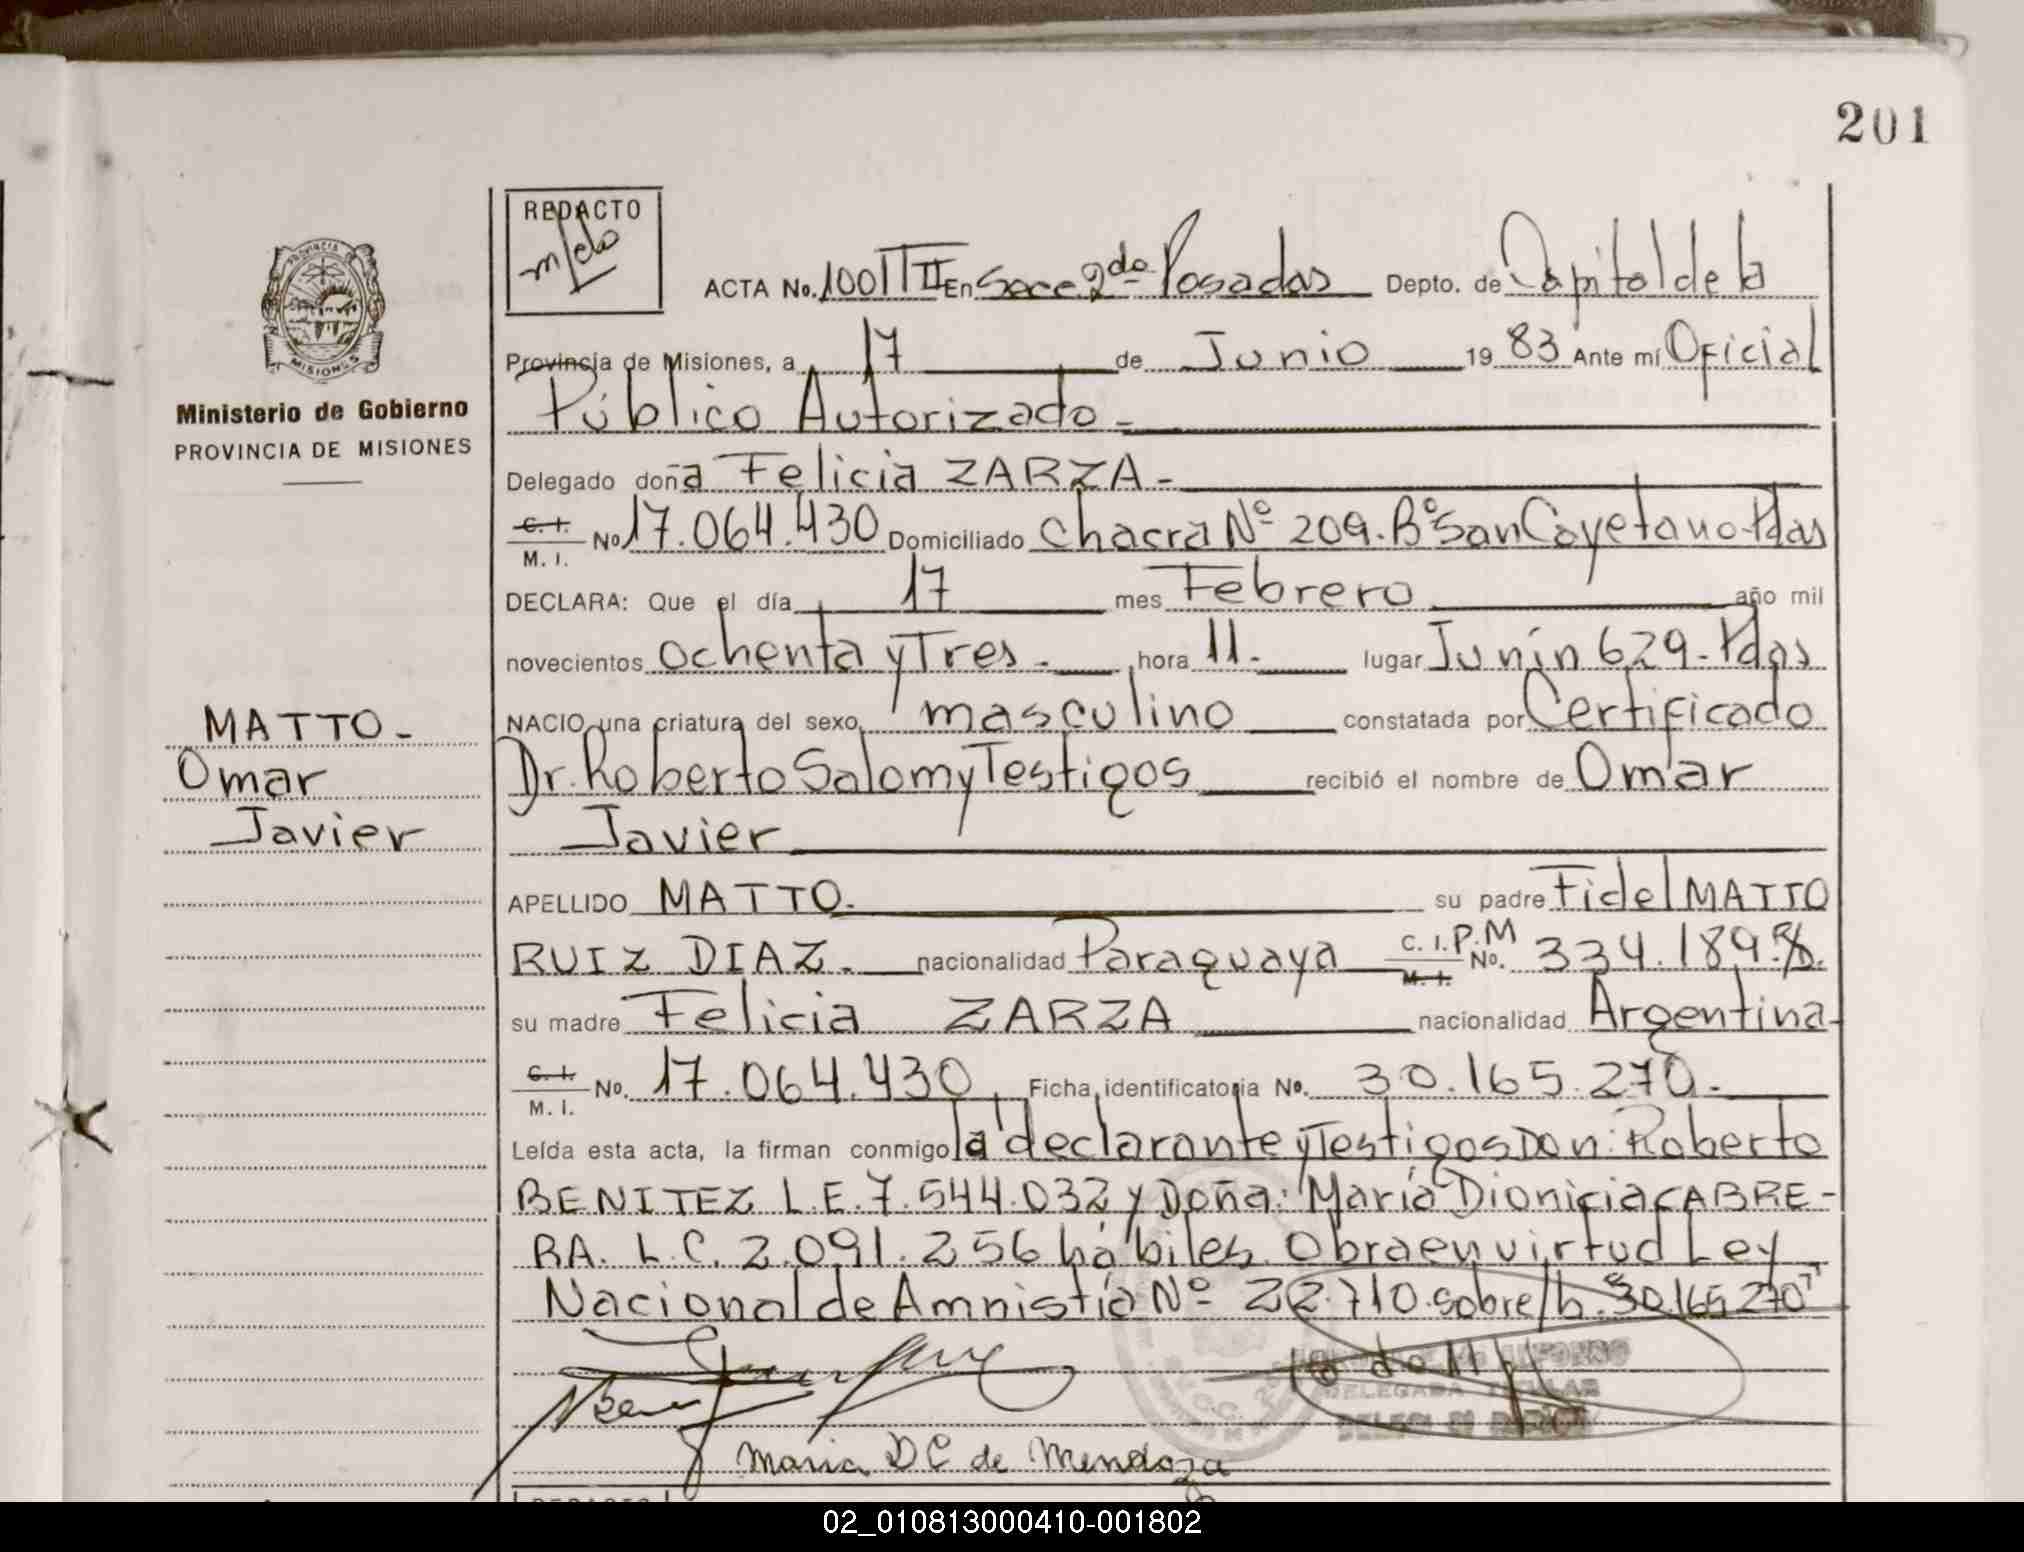 201
REDACTO
ACTA No. 1001 TII En Secc 2da Posadas Depto. de Capital de la
Provincia de Misiones, a 17 de Junio 19 83 Ante mí Oficial
Público Autorizado -
Delegado doña Felicia ZARZA -
C. I. M. I. No 17.064.430 Domiciliado Chacra Nº 209. Bº San Cayetano - Pdas
DECLARA: Que el día 17 mes Febrero año mil
novecientos ochenta y Tres. hora 11. lugar Junín 629 - Pdas
NACIO una criatura del sexo masculino constatada por Certificado
Dr. Roberto Salom y Testigos recibió el nombre de Omar
Javier
APELLIDO MATTO. su padre Fidel MATTO
RUIZ DIAZ. nacionalidad Paraguaya C. I. P.M M. I. No. 334.189
su madre Felicia ZARZA nacionalidad Argentina -
C. I. M. I. No. 17.064.430 Ficha identificatoria No. 30.165.270.-
Leída esta acta, la firman conmigo la declarante y Testigos Don: Roberto
BENITEZ L.E. 7.544.032 y Doña: María Dionicia CABRE-
RA. L.C. 2.091.256 hábiles. Obra en virtud Ley
Nacional de Amnistía Nº 22.710. sobre/b. 30.165.270
DELEGADA TITULAR
Maria D C de Mendoza
Ministerio de Gobierno
PROVINCIA DE MISIONES
MATTO -
Omar
Javier
PROVINCIA
MISIONES
02_010813000410-001802